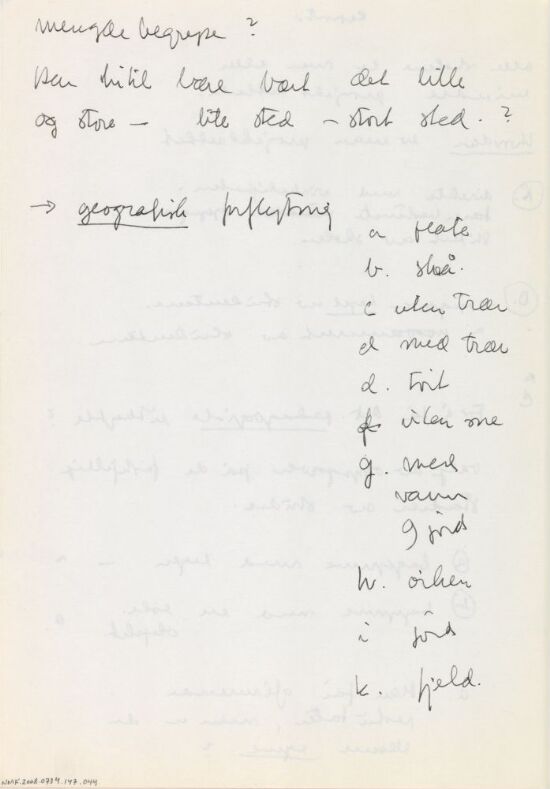 mengde begrepe ?
Den hitil være vært det lille
og store – lite sted – stort sted . ?
→ geografisk
a flate
b. skrå.
c uten trær
d med trær
d. tørt
uten sne
g. med
vann
9 jord
h. ørken
i jord
k. fjeld.
NMK.2008.0734.147.044